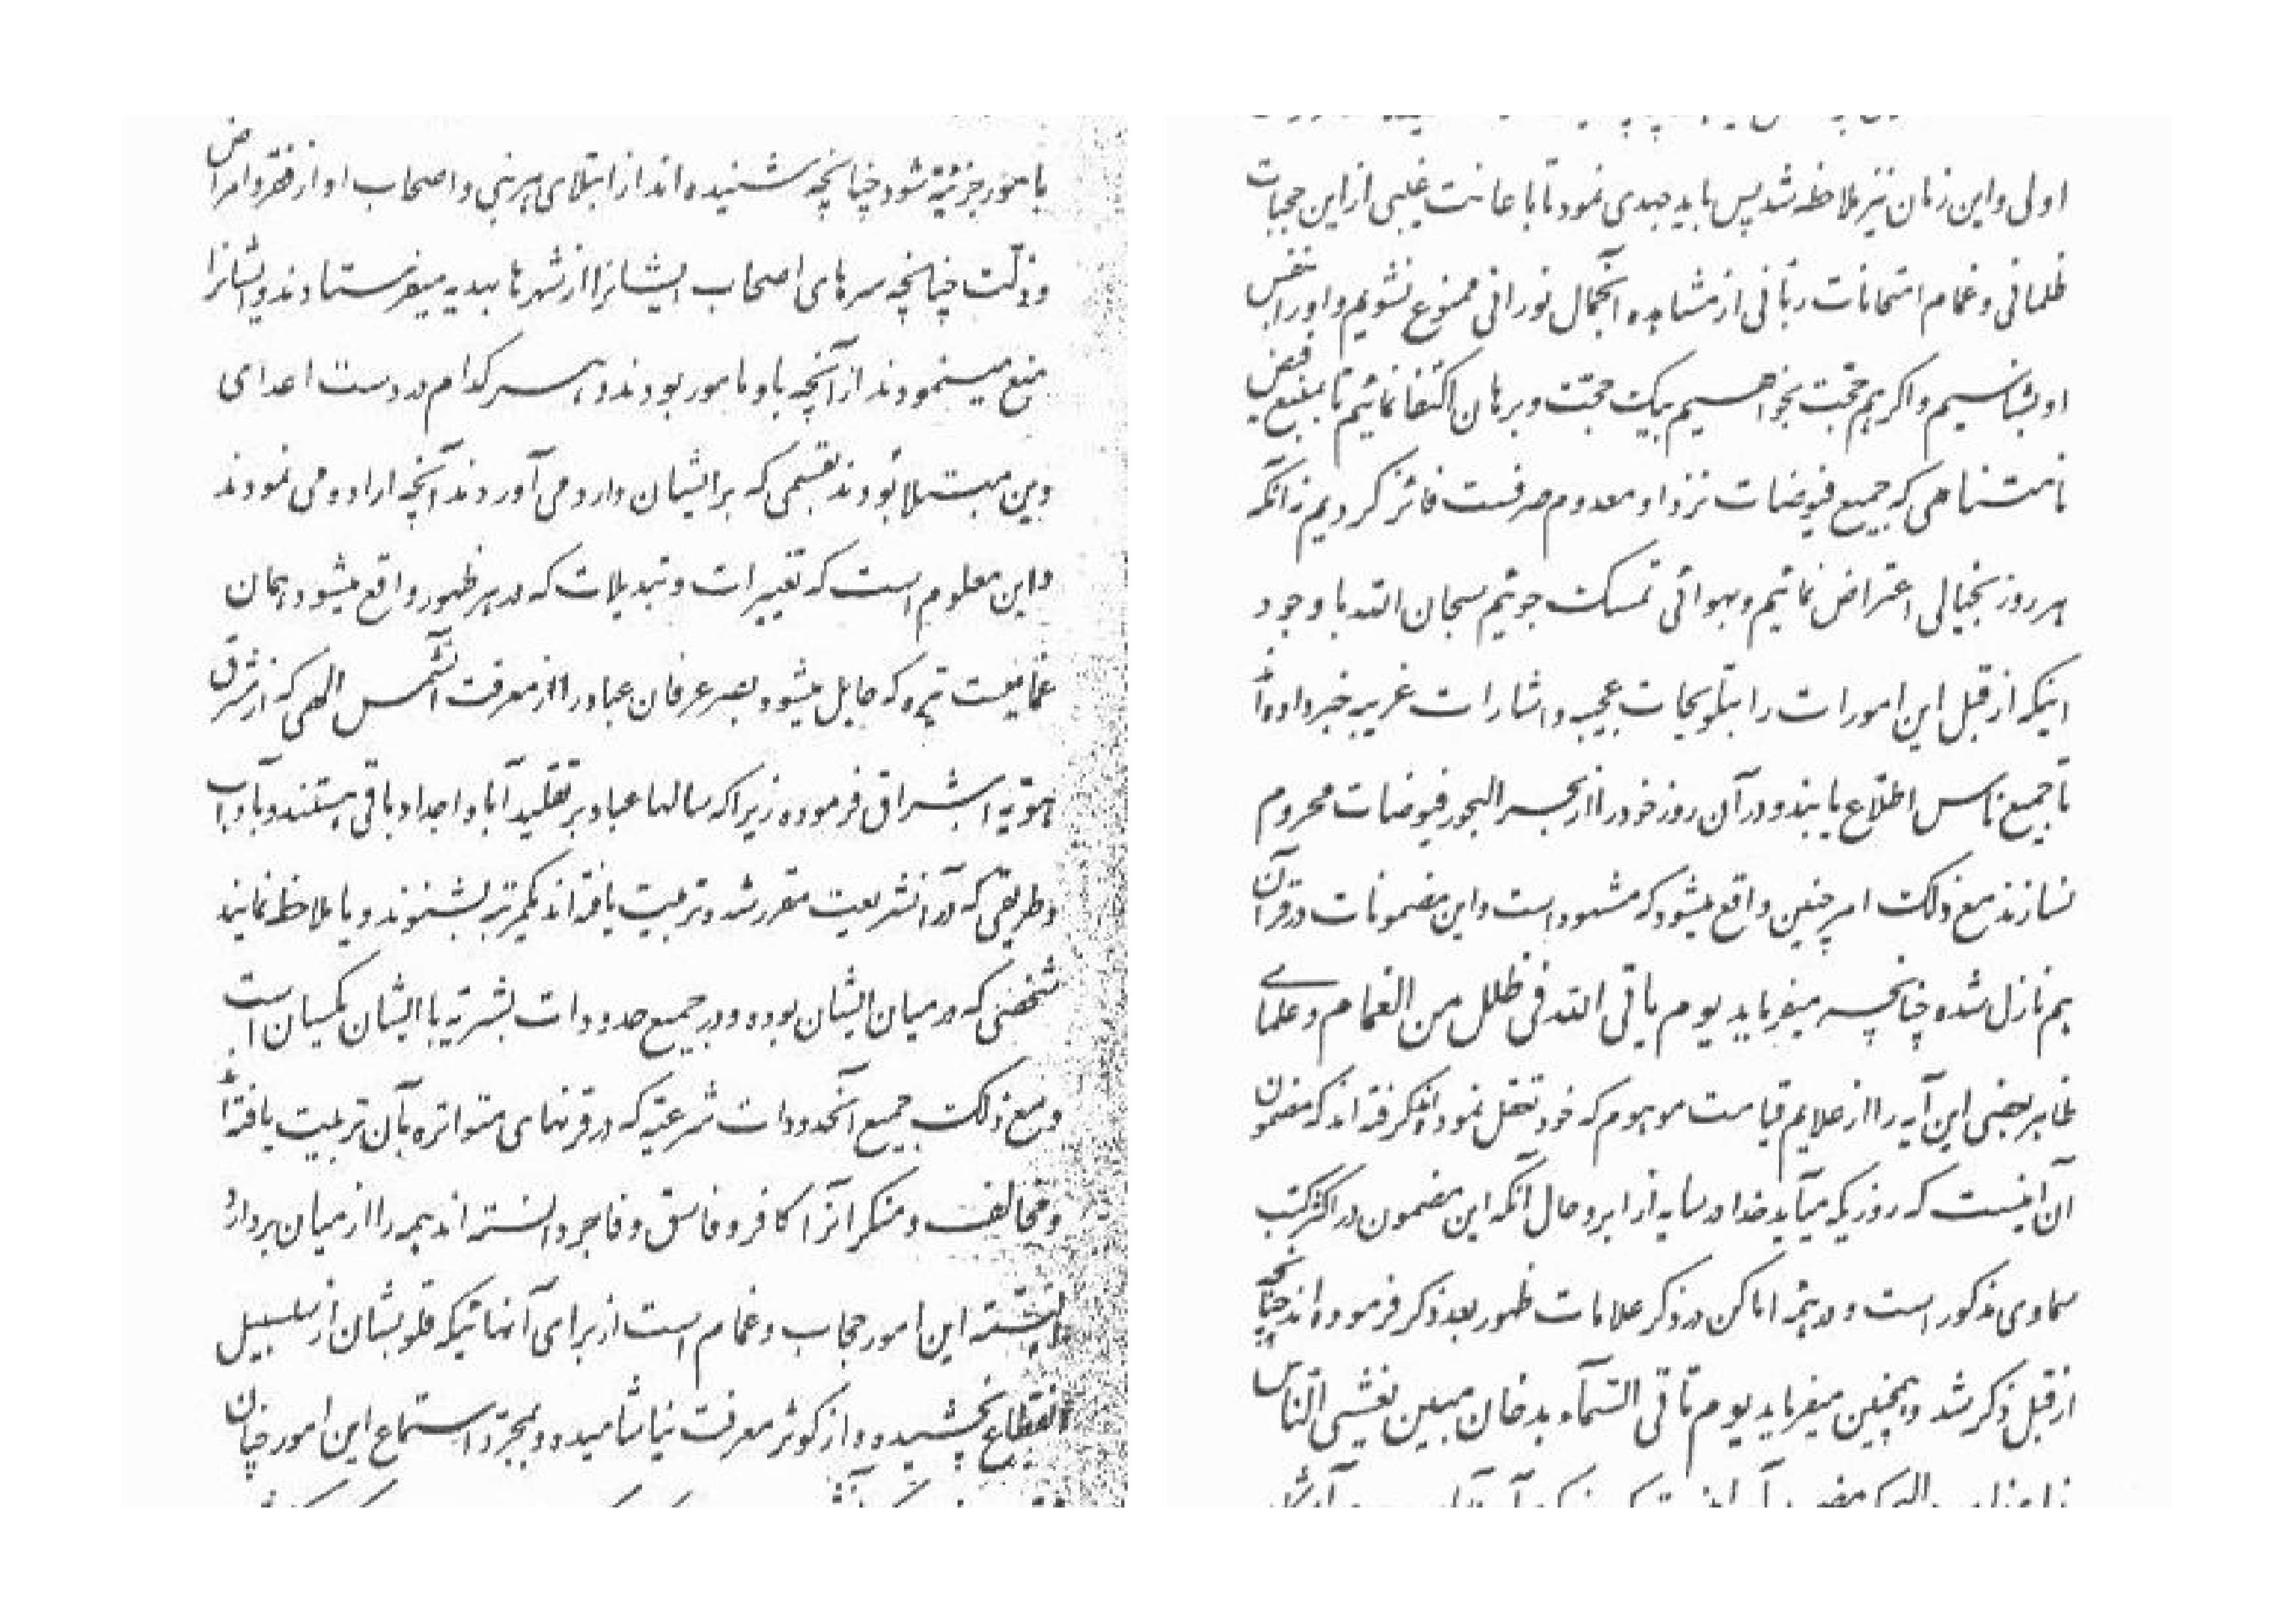 بامور جزئیّه شود چنانچه شنیده اند از ابتلای هر نبی و اصحاب او از فقر و امراض
و ذلّت چنانچه سرهای اصحاب ایشانرا از شهرها بهدیه میفرستادند و ایشانرا
منع مینمودند از آنچه باو مامور بودند و هر کدام در دست اعدای
دین مبتلا بودند بقسمی که بر ایشان وارد می آوردند آنچه اراده می نمودند
و این معلوم است که تغییرات و تبدیلات که در هر ظهور واقع میشود همان
غمامیست تیره که حایل میشود بصر عرفان عباد را از معرفت آنشمس الهی که از مشرق
هویّه اشراق فرموده زیرا که سالها عباد بر تقلید آبا و اجداد باقی هستند و بآداب
و طریقی که در آنشریعت مقرر شده تربیت یافته اند یکمرتبه بشنوند و یا ملاحظه نمایند
شخصی که در میان ایشان بوده و در جمیع حدودات بشریّه با ایشان یکسان است
و مع ذلک جمیع آنحدودات شرعیّه که در قرنهای متواتره بآن تربیت یافته اند
و مخالف و منکر آنرا کافر و فاسق و فاجر دانسته اند همه را از میان بردارد
البتّه این امور حجاب و غمام است از برای آنهائیکه قلوبشان از سلسبیل
انقطاع نچشیده و از کوثر معرفت نیاشامیده و بمجرّد استماع این امور چنان
اولی و این زمان نیز ملاحظه شد پس باید جهدی نمود تا باعانت غیبی از این حجبات
ظلمانی و غمام امتحانات ربّانی از مشاهده آنجمال نورانی ممنوع نشویم و او را بنفس
او بشناسیم و اگر هم حجّت بخواهیم بیک حجّت و برهان اکتفا نمائیم تا بمنبع فیض
نامتناهی که جمیع فیوضات نزد او معدوم صرفست فائز گردیم نه آنکه
هر روز بخیالی اعتراض نمائیم و بهوائی تمسّک جوئیم سبحان الله با وجود
اینکه از قبل این امورات را بتلویحات عجیبه و اشارات غریبه خبر داده اند
تا جمیع ناس اطّلاع یابند و در آن روز خود را از بحر البحور فیوضات محروم
نسازند مع ذلک امر چنین واقع میشود که مشهود است و این مضمونات در قرآن
هم نازل شده چنانچه میفرماید یوم یاتی الله فی ظلل من الغمام و علمای
ظاهر بعضی این آیه را از علایم قیامت موهوم که خود تعقّل نموده اند گرفته اند که مضمون
آن اینست که روزیکه میآید خدا در سایه از ابر و حال آنکه این مضمون در اکثر کتب
سماوی مذکور است و در همه اماکن در ذکر علامات ظهور بعد ذکر فرموده اند چنانچه
از قبل ذکر شد و همچنین میفرماید یوم تاتی السّمآء بدخان مبین یغشی النّاس